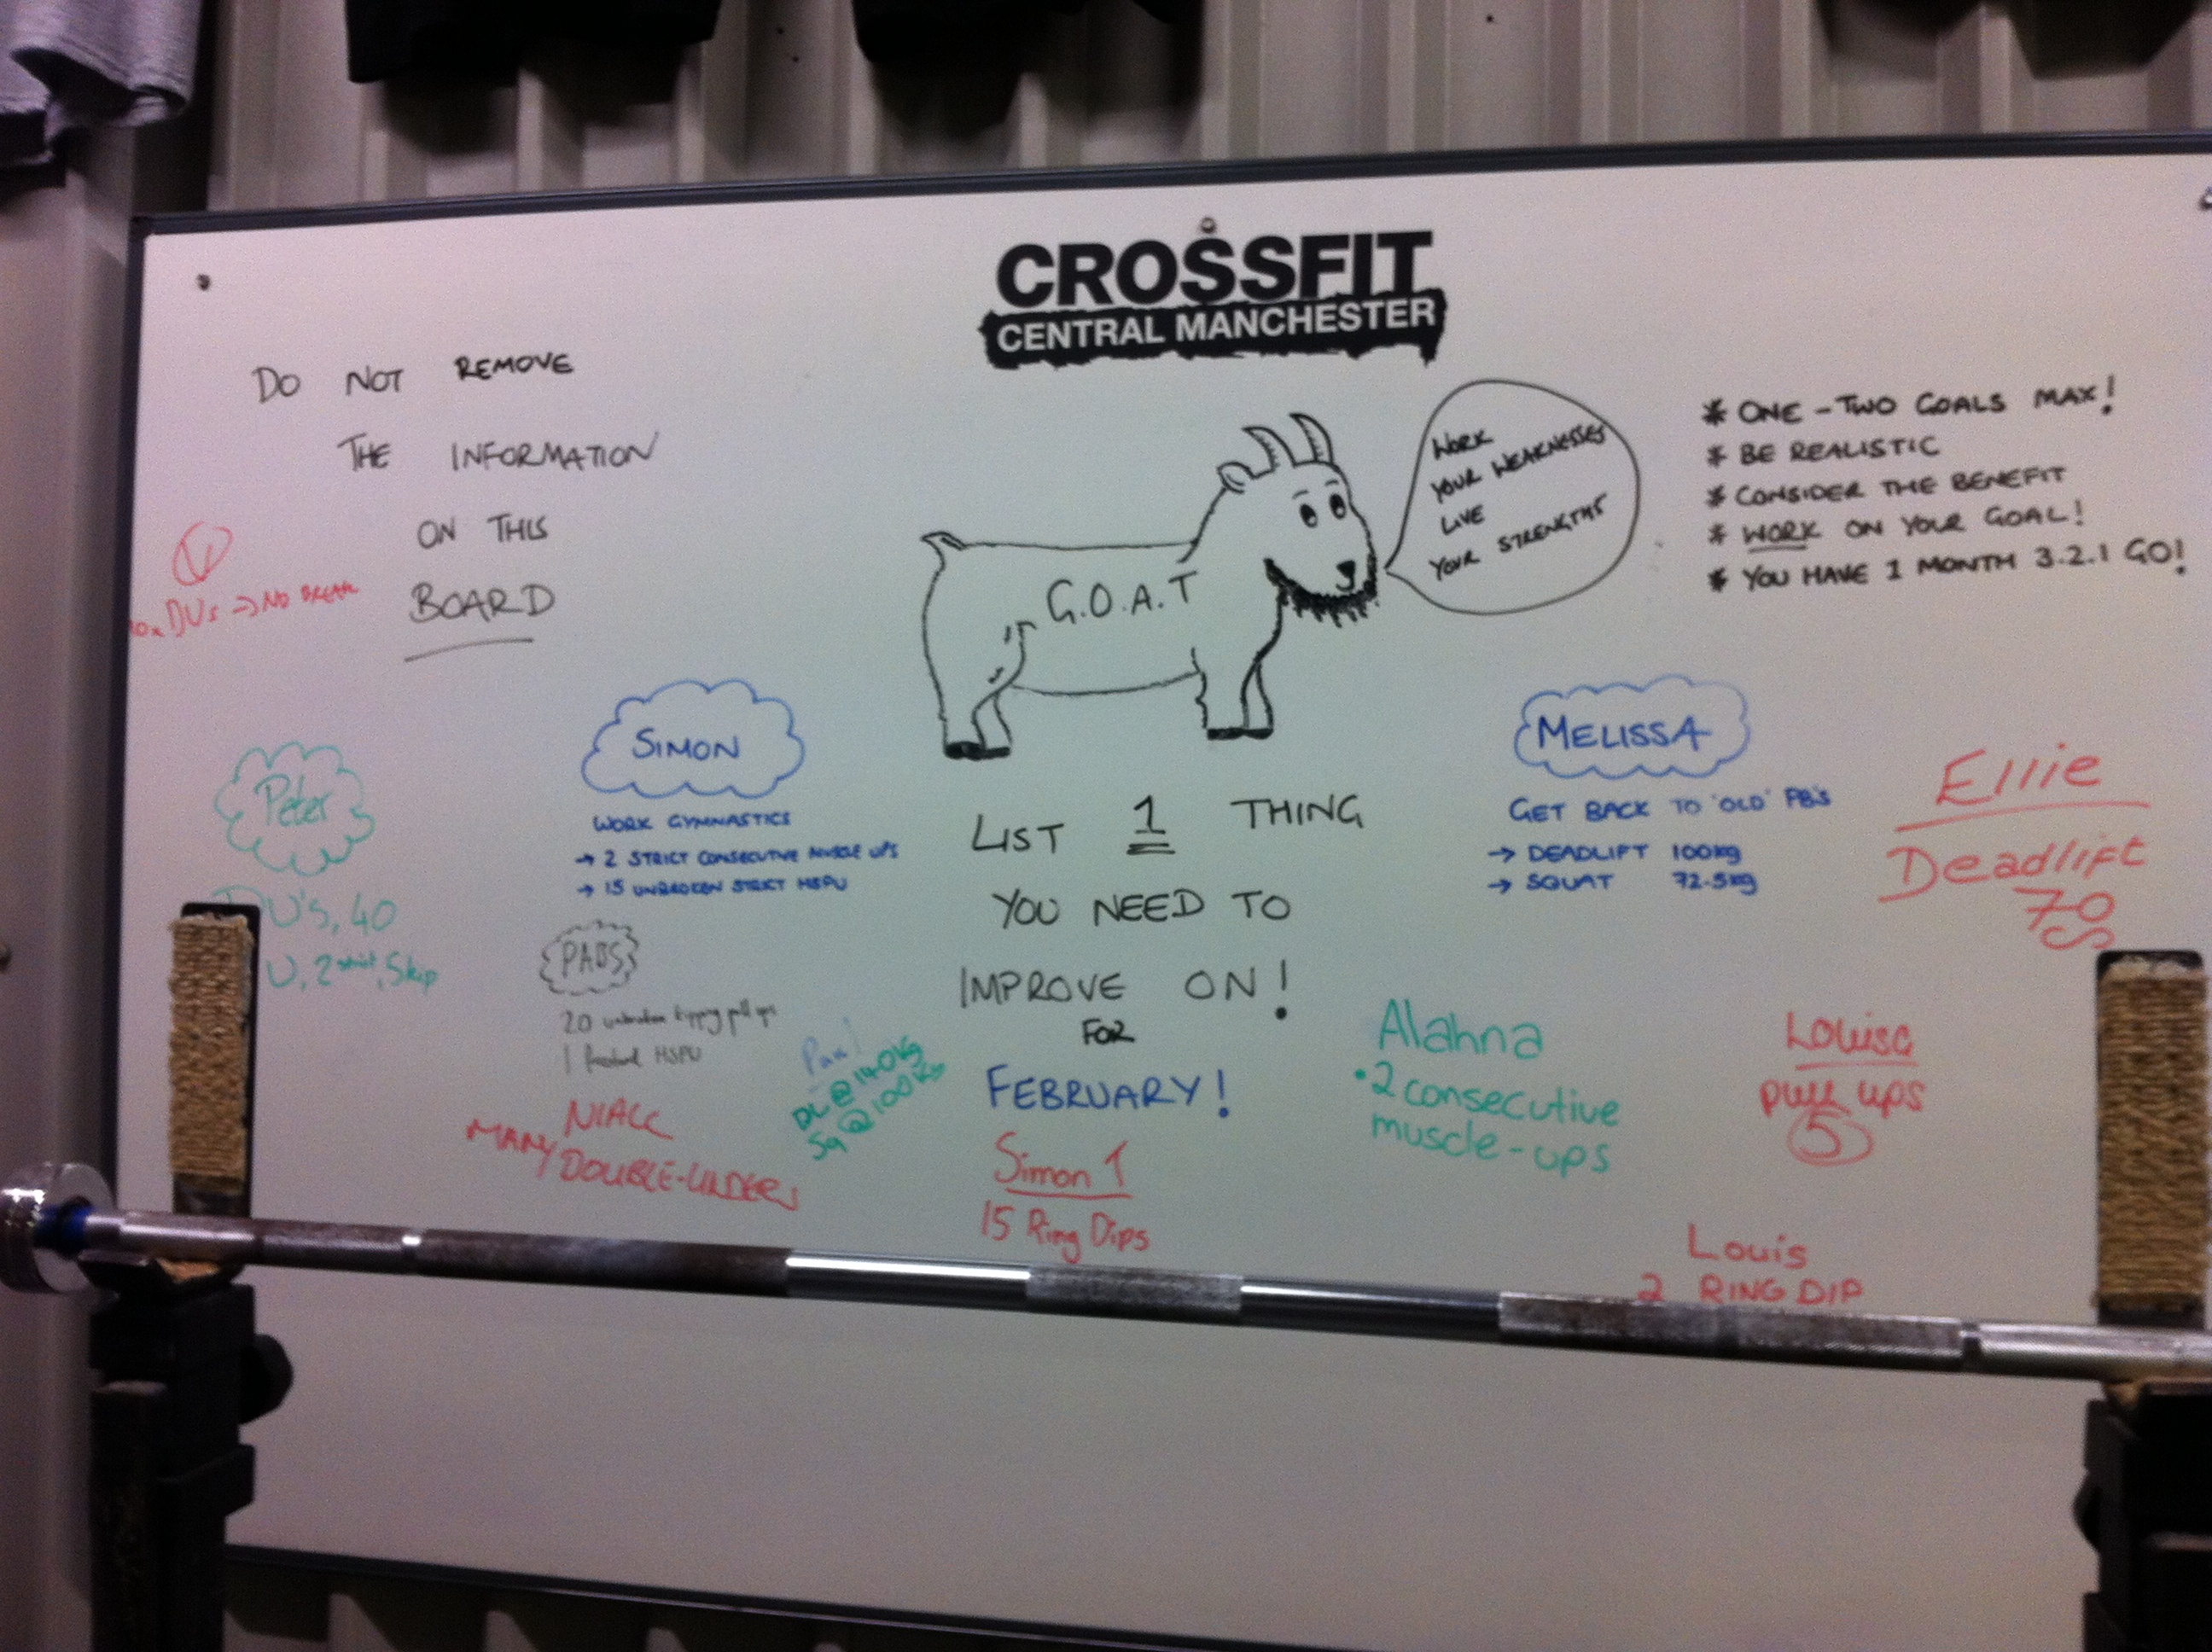 CROSSFIT
CENTRAL MANCHESTER
DO NOT REMOVE
THE INFORMATION
ON THIS
BOARD
G.O.A.T
WORK
YOUR WEAKNESSES
LIVE
YOUR STRENGTHS
* ONE - TWO GOALS MAX!
* BE REALISTIC
* CONSIDER THE BENEFIT
* WORK ON YOUR GOAL!
* YOU HAVE 1 MONTH 3.2.1 GO!
DUs → NO BREAK
Peter
DU'S, 40
U, 2 strict, 5 kip
SIMON
WORK GYMNASTICS
→ 2 STRICT CONSECUTIVE MUSCLE UPS
→ 15 UNBROKEN STRICT HSPU
PABS
20 unbroken kipping pull ups
1 HSPU
NIALL
MANY DOUBLE-UNDERS
Paul
DL @ 140Kg
Sq @ 100Kg
LIST 1 THING
YOU NEED TO
IMPROVE ON!
FOR
FEBRUARY!
Simon T
15 Ring Dips
MELISSA
GET BACK TO 'OLD' PB'S
→ DEADLIFT 100kg
→ SQUAT 72.5kg
Ellie
Deadlift
70
Alahna
• 2 consecutive
muscle-ups
Louisa
pull ups
5
Louis
2 RING DIP